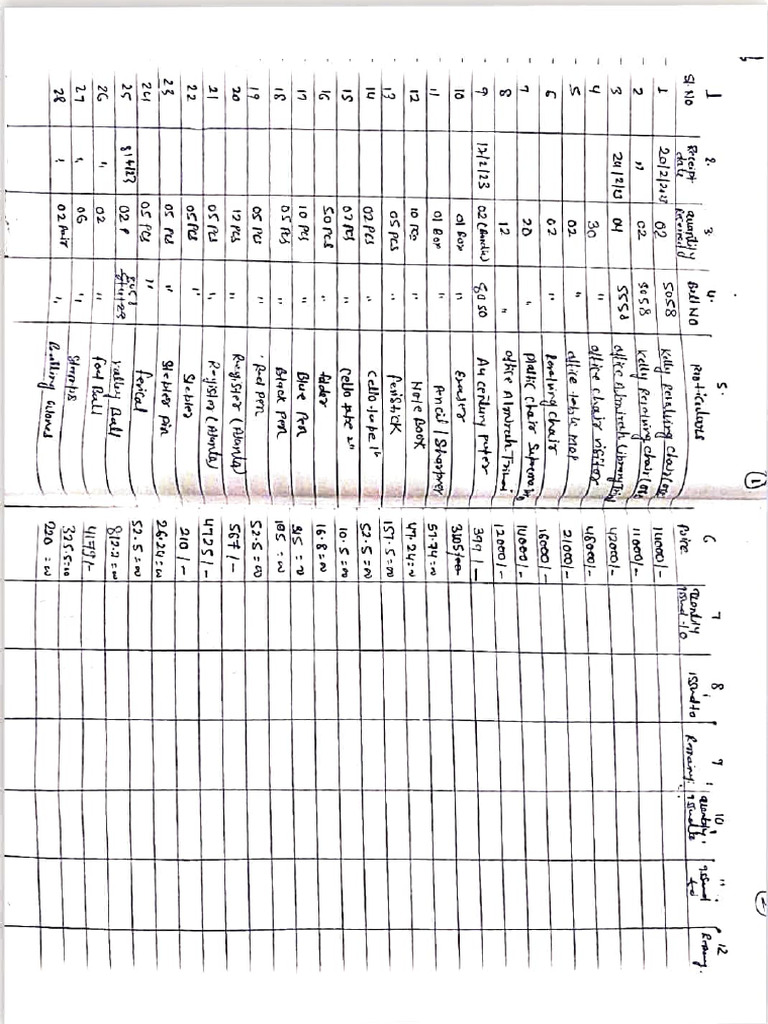 1 2. 3. 4. 5. 6 7 8 9 10 " 12
Sl. No Receipt date quantity Received Bill NO Particulars Price quantity issued to issued to Remaing. quantity issued to issued to Remaing.
1 20/2/2023 02 5058 Kelly Revolving chair 14000/-
2 " 02 5058 Kelly Revolving chair 11000/-
3 24/2/23 04 5558 office Almirah (library) 42000/-
4 30 " office chair visitor 48000/-
5 02 " office table 21000/-
6 02 " Revolving chair 16000/-
7 20 " Plastic chair Supreme 14000/-
8 12 " office Almirah 12000/-
9 17/2/23 02 (Bundle) 5050 A4 century paper 399/-
10 01 Box " Eraser
11 01 Box " Pencil / Sharpner 59.74=00
12 10 Pcs " Note Book 47.24=00
13 05 Pcs " Fevistick 157.5=00
14 02 Pcs " cello tape 1" 52.5=00
15 07 Pcs " cello tape 2" 10.5=00
16 50 Pcs " folder 16.8=00
17 10 Pcs " Blue Pen 315=00
18 05 Pcs " Black Pen 105=00
19 05 Pcs " Red pen 52.5=00
20 12 Pcs " Register (Atlanta) 567/-
21 05 Pcs " Register (Atlanta) 4725/-
22 05 Pcs " Stabler 210/-
23 05 Pcs " Stabler pin 26.24=00
24 05 Pcs " fevicol 52.5=00
25 8/4/23 02 P Valley Ball 812.2=00
26 " 02 " foot Ball 4179/-
27 " 06 " Stumps 325.5=00
28 " 02 Pair " Batting Gloves 220=00